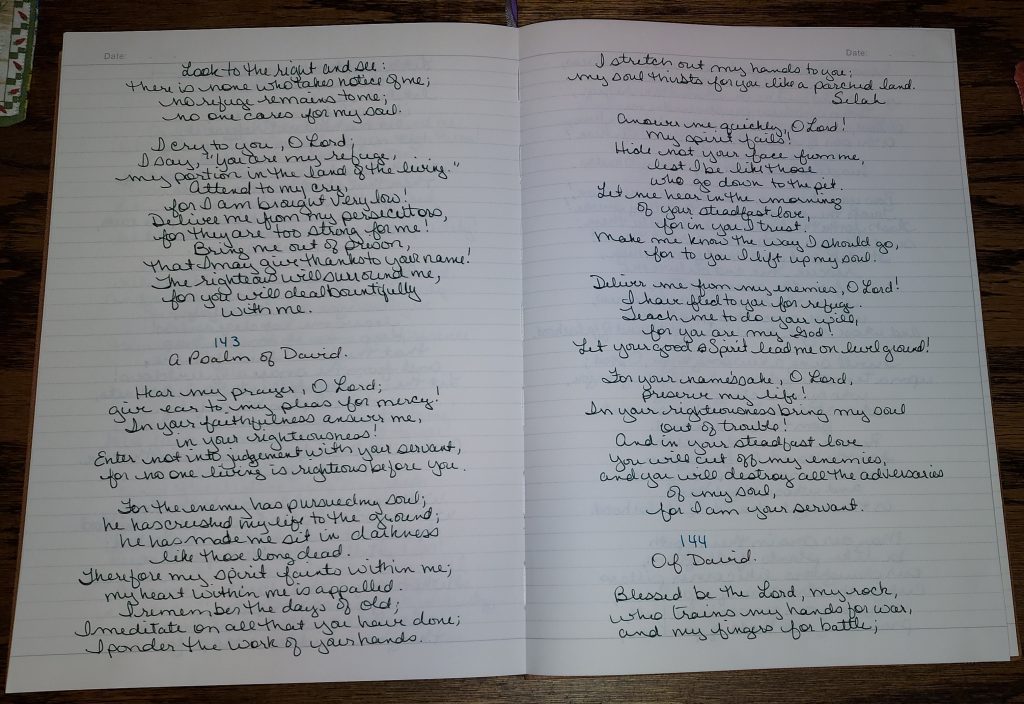 Date:
Look to the right and see:
there is none who takes notice of me;
no refuge remains to me;
no one cares for my soul.
I cry to you, O Lord;
I say, "You are my refuge,
my portion in the land of the living."
Attend to my cry,
for I am brought very low!
Deliver me from my persecutors,
for they are too strong for me!
Bring me out of prison,
that I may give thanks to your name!
The righteous will surround me,
for you will deal bountifully
with me.
143
A Psalm of David.
Hear my prayer, O Lord;
give ear to my pleas for mercy!
In your faithfulness answer me,
in your righteousness!
Enter not into judgement with your servant,
for no one living is righteous before you.
For the enemy has pursued my soul;
he has crushed my life to the ground;
he has made me sit in darkness
like those long dead.
Therefore my spirit faints within me;
my heart within me is appalled.
I remember the days of old;
I meditate on all that you have done;
I ponder the work of your hands.
Date:
I stretch out my hands to you;
my soul thirsts for you like a parched land.
Selah
Answer me quickly, O Lord!
My spirit fails!
Hide not your face from me,
lest I be like those
who go down to the pit.
Let me hear in the morning
of your steadfast love,
for in you I trust.
Make me know the way I should go,
for to you I lift up my soul.
Deliver me from my enemies, O Lord!
I have fled to you for refuge.
Teach me to do your will,
for you are my God!
Let your good Spirit lead me on level ground!
For your name's sake, O Lord,
preserve my life!
In your righteousness bring my soul
out of trouble!
And in your steadfast love
you will cut off my enemies,
and you will destroy all the adversaries
of my soul,
for I am your servant.
144
Of David.
Blessed be the Lord, my rock,
who trains my hands for war,
and my fingers for battle;